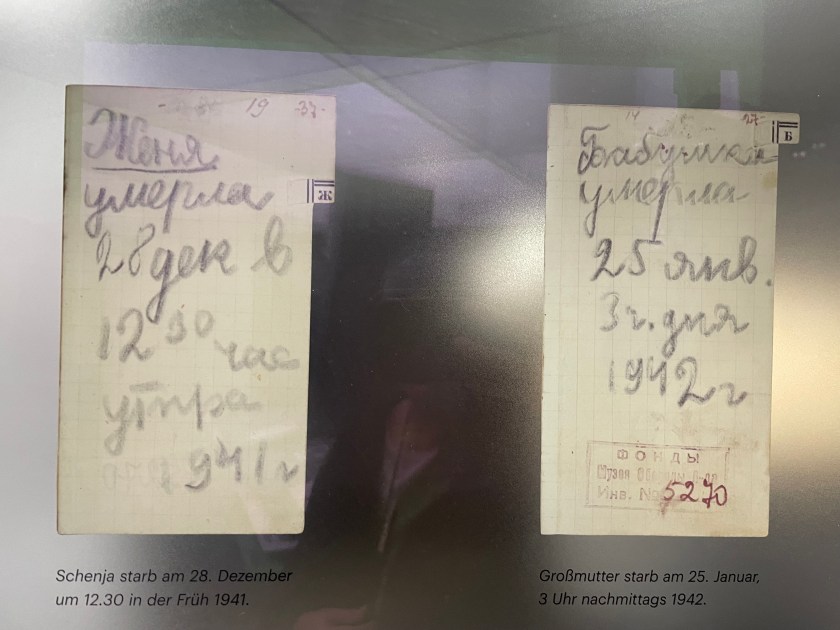 19 -37-
Женя
умерла
Ж
28 дек в
12 30 час
утра
1941 г
Schenja starb am 28. Dezember
um 12.30 in der Früh 1941.
14 27-
Б
Бабушка
умерла
25 янв.
3 ч. дня
1942 г
ФОНДЫ
Музея Обороны
Инв. № 5270
Großmutter starb am 25. Januar,
3 Uhr nachmittags 1942.